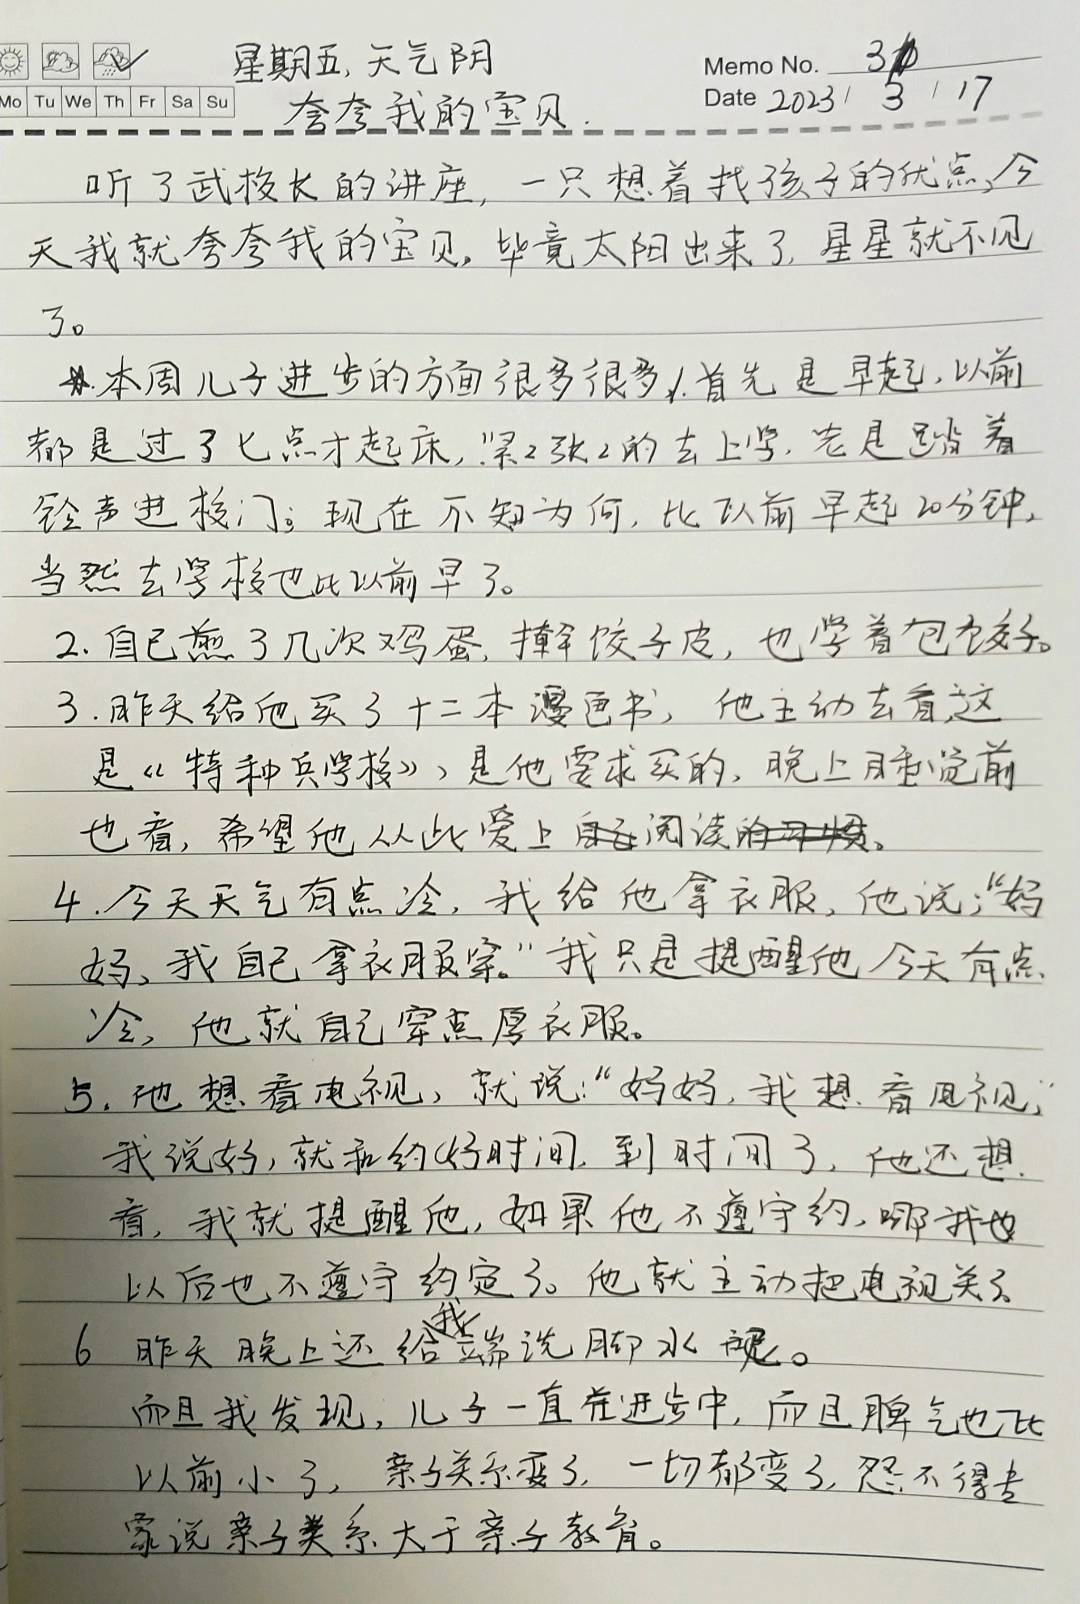 星期五,天气阴
Memo No. 3
Mo Tu We Th Fr Sa Su
Date 2023/3/17
夸夸我的宝贝.
听了武校长的讲座,一只想着找孩子的优点,今
天我就夸夸我的宝贝,毕竟太阳出来了,星星就不见
了。
本周儿子进步的方面很多很多,1.首先是早起,以前
都是过了七点才起床,紧2张2的去上学,老是踏着
铃声进校门;现在不知为何,比以前早起20分钟,
当然去学校也比以前早了。
2.自己煎了几次鸡蛋,擀饺子皮,也学着包饺子。
3.昨天给他买了十二本漫画书,他主动去看,这
是《特种兵学校》,是他要求买的,晚上睡觉前
也看,希望他从此爱上阅读。
4.今天天气有点冷,我给他拿衣服,他说:“妈
妈,我自己拿衣服穿。”我只是提醒他今天有点
冷,他就自己穿点厚衣服。
5.他想看电视,就说:“妈妈,我想看电视,”
我说好,就和约好时间,到时间了,他还想
看,我就提醒他,如果他不遵守约,哪我也
以后也不遵守约定了。他就主动把电视关了
6 昨天晚上还给我端洗脚水呢。
而且我发现,儿子一直在进步中,而且脾气也比
以前小了,亲子关系变了,一切都变了,怨不得专
家说亲子关系大于亲子教育。